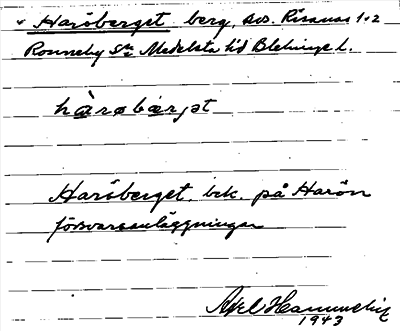 Haröberget berg, sv. Risanäs 1:2
Ronneby sn Medelsta hd Blekinge l.
hàrøbærjət
Haröberget. bek. på Harön
försvarsanläggningar
Axel
1943